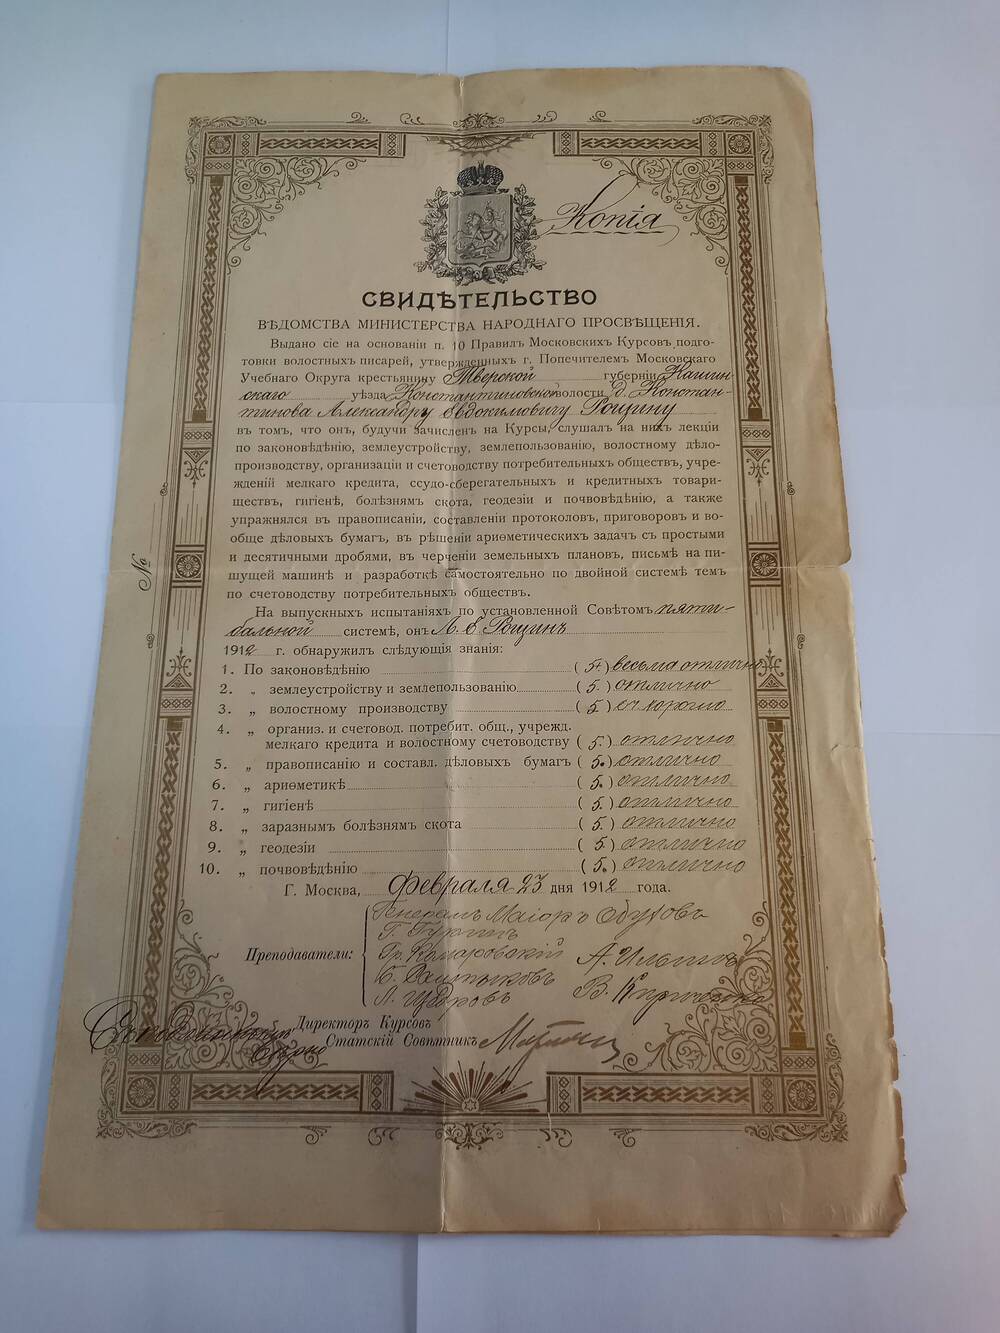 Копія
СВИДѢТЕЛЬСТВО
ВѢДОМСТВА МИНИСТЕРСТВА НАРОДНАГО ПРОСВѢЩЕНІЯ.
Выдано сіе на основаніи п. 10 Правилъ Московскихъ Курсовъ подго-
товки волостныхъ писарей, утвержденныхъ г. Попечителемъ Московскаго
Учебнаго Округа крестьянину Тверской губерніи Кашин-
скаго уѣзда Константиновской волости д. Констан-
тинова Александру Евдокимовичу Рощину
въ томъ, что онъ, будучи зачисленъ на Курсы, слушалъ на нихъ лекціи
по законовѣдѣнію, землеустройству, землепользованію, волостному дѣло-
производству, организаціи и счетоводству потребительныхъ обществъ, учре-
жденій мелкаго кредита, ссудо-сберегательныхъ и кредитныхъ товари-
ществъ, гигіенѣ, болѣзнямъ скота, геодезіи и почвовѣдѣнію, а также
упражнялся въ правописаніи, составленіи протоколовъ, приговоровъ и во-
обще дѣловыхъ бумагъ, въ рѣшеніи ариѳметическихъ задачъ съ простыми
и десятичными дробями, въ черченіи земельныхъ плановъ, письмѣ на пи-
шущей машинѣ и разработкѣ самостоятельно по двойной системѣ темъ
по счетоводству потребительныхъ обществъ.
№
На выпускныхъ испытаніяхъ по установленной Совѣтомъ пяти-
бальной системѣ, онъ А. Е. Рощинъ
1912 г. обнаружилъ слѣдующія знанія:
1. По законовѣдѣнію (5+) весьма отлично
2. „ землеустройству и землепользованію (5.) отлично
3. „ волостному производству (5.)
4. „ организ. и счетовод. потребит. общ., учрежд.
мелкаго кредита и волостному счетоводству (5.) отлично
5. „ правописанію и составл. дѣловыхъ бумагъ (5.) отлично
6. „ ариѳметикѣ (5.) отлично
7. „ гигіенѣ (5.) отлично
8. „ заразнымъ болѣзнямъ скота (5.) отлично
9. „ геодезіи (5.) отлично
10. „ почвовѣдѣнію (5.) отлично
Г. Москва, Февраля 23 дня 1912 года.
Генералъ Маіоръ Обуховъ
Преподаватели:
Гр. Комаровскій А. Ильинъ
Б. Салтыковъ
Л. Уваровъ В. Кириченко
Директоръ Курсовъ
Статскій Совѣтникъ